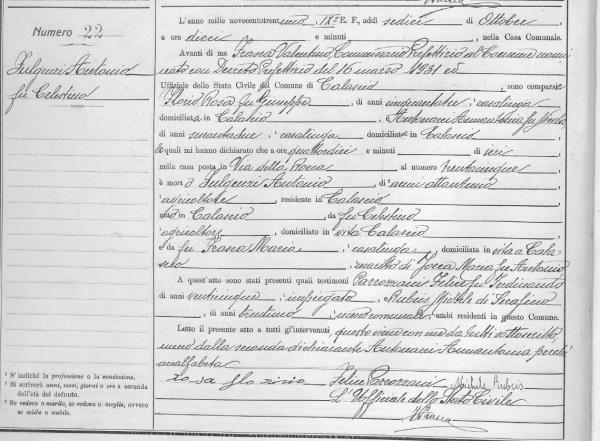 Numero 22
Fulgenzi Antonio
fu Celestino
L'anno mille novecentotrentuno IX° E. F., addì sedici di Ottobre,
a ore dieci e minuti , nella Casa Comunale.
Avanti di me Frasca Valentino, Commissario Prefettizio al Comune nomi
nato con Decreto Prefettizio del 16 marzo 1931 ed
Uffiziale dello Stato Civile del Comune di Calascio, sono comparse
Florio Rosa fu Giuseppe, di anni, casalinga,
domiciliata in Calascio, Antonacci Annantonia fu
di anni, casalinga domiciliata in Calascio
le quali mi hanno dichiarato che a ore quattordici e minuti di ieri
nella casa posta in Via della Rocca al numero trentacinque,
è morto Fulgenzi Antonio di anni ottantuno
agricoltore, residente in Calascio,
nato in Calascio, da fu Celestino
agricoltore, domiciliato in vita Calascio
e da fu Frasca Maria, casalinga, domiciliata in vita a Cala-
scio, marito di Jocca Maria fu Antonio
A quest'atto sono stati presenti quali testimoni Parrozzani Felice fu Ferdinando
di anni ventinove impiegato, Rubeis Michele di Serafino
, di anni trentuno, messo comunale, ambi residenti in questo Comune.
Letto il presente atto a tutti gl'intervenuti, questi con me da tutti sottoscritto,
meno della seconda dichiarante Antonacci Annantonia perché
analfabeta
Rosa Florio Felice Parrozzani Michele Rubeis
L'Ufficiale dello Stato Civile
VFrasca
¹ S'indichi la professione o la condizione.
² Si scriverà anni, mesi, giorni o ore a seconda
dell'età del defunto.
³ Se vedovo o marito, se vedova o moglie, ovvero
se celibe o nubile.